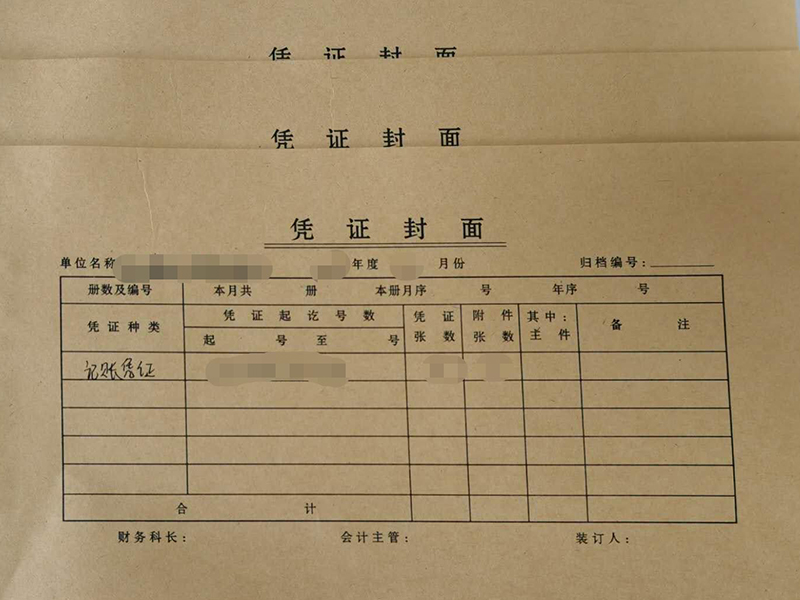 凭证封面
凭证封面
凭证封面
单位名称 年度 月份 归档编号:
册数及编号 本月共 册 本册月序 号 年序 号
凭证种类 凭证起讫号数 凭证张数 附件张数 其中:主件 备注
起 号至 号
记账凭证
合计
财务科长: 会计主管: 装订人: